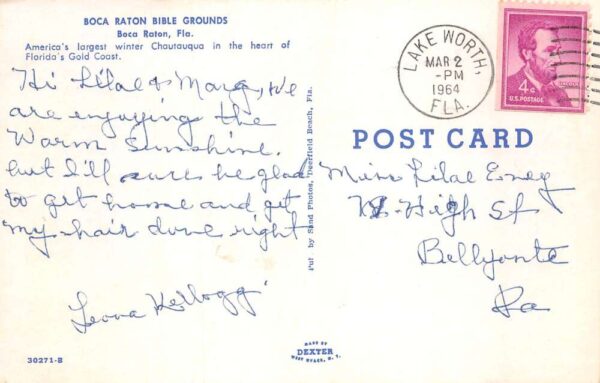 BOCA RATON BIBLE GROUNDS
Boca Raton, Fla.
America's largest winter Chautauqua in the heart of
Florida's Gold Coast.
Hi Lilae & Marg, We
are enjoying the
Warm Sunshine.
but I'll sure be glad
to get home and get
my hair done right
Leona Kellogg
30271-B
Pub. by Sand Photos, Deerfield Beach, Fla.
MADE BY
DEXTER
WEST NYACK, N. Y.
LAKE WORTH,
MAR 2
-PM
1964
FLA.
4¢
U.S. POSTAGE
POST CARD
Miss Lilae
High St
Bellefonte
Pa